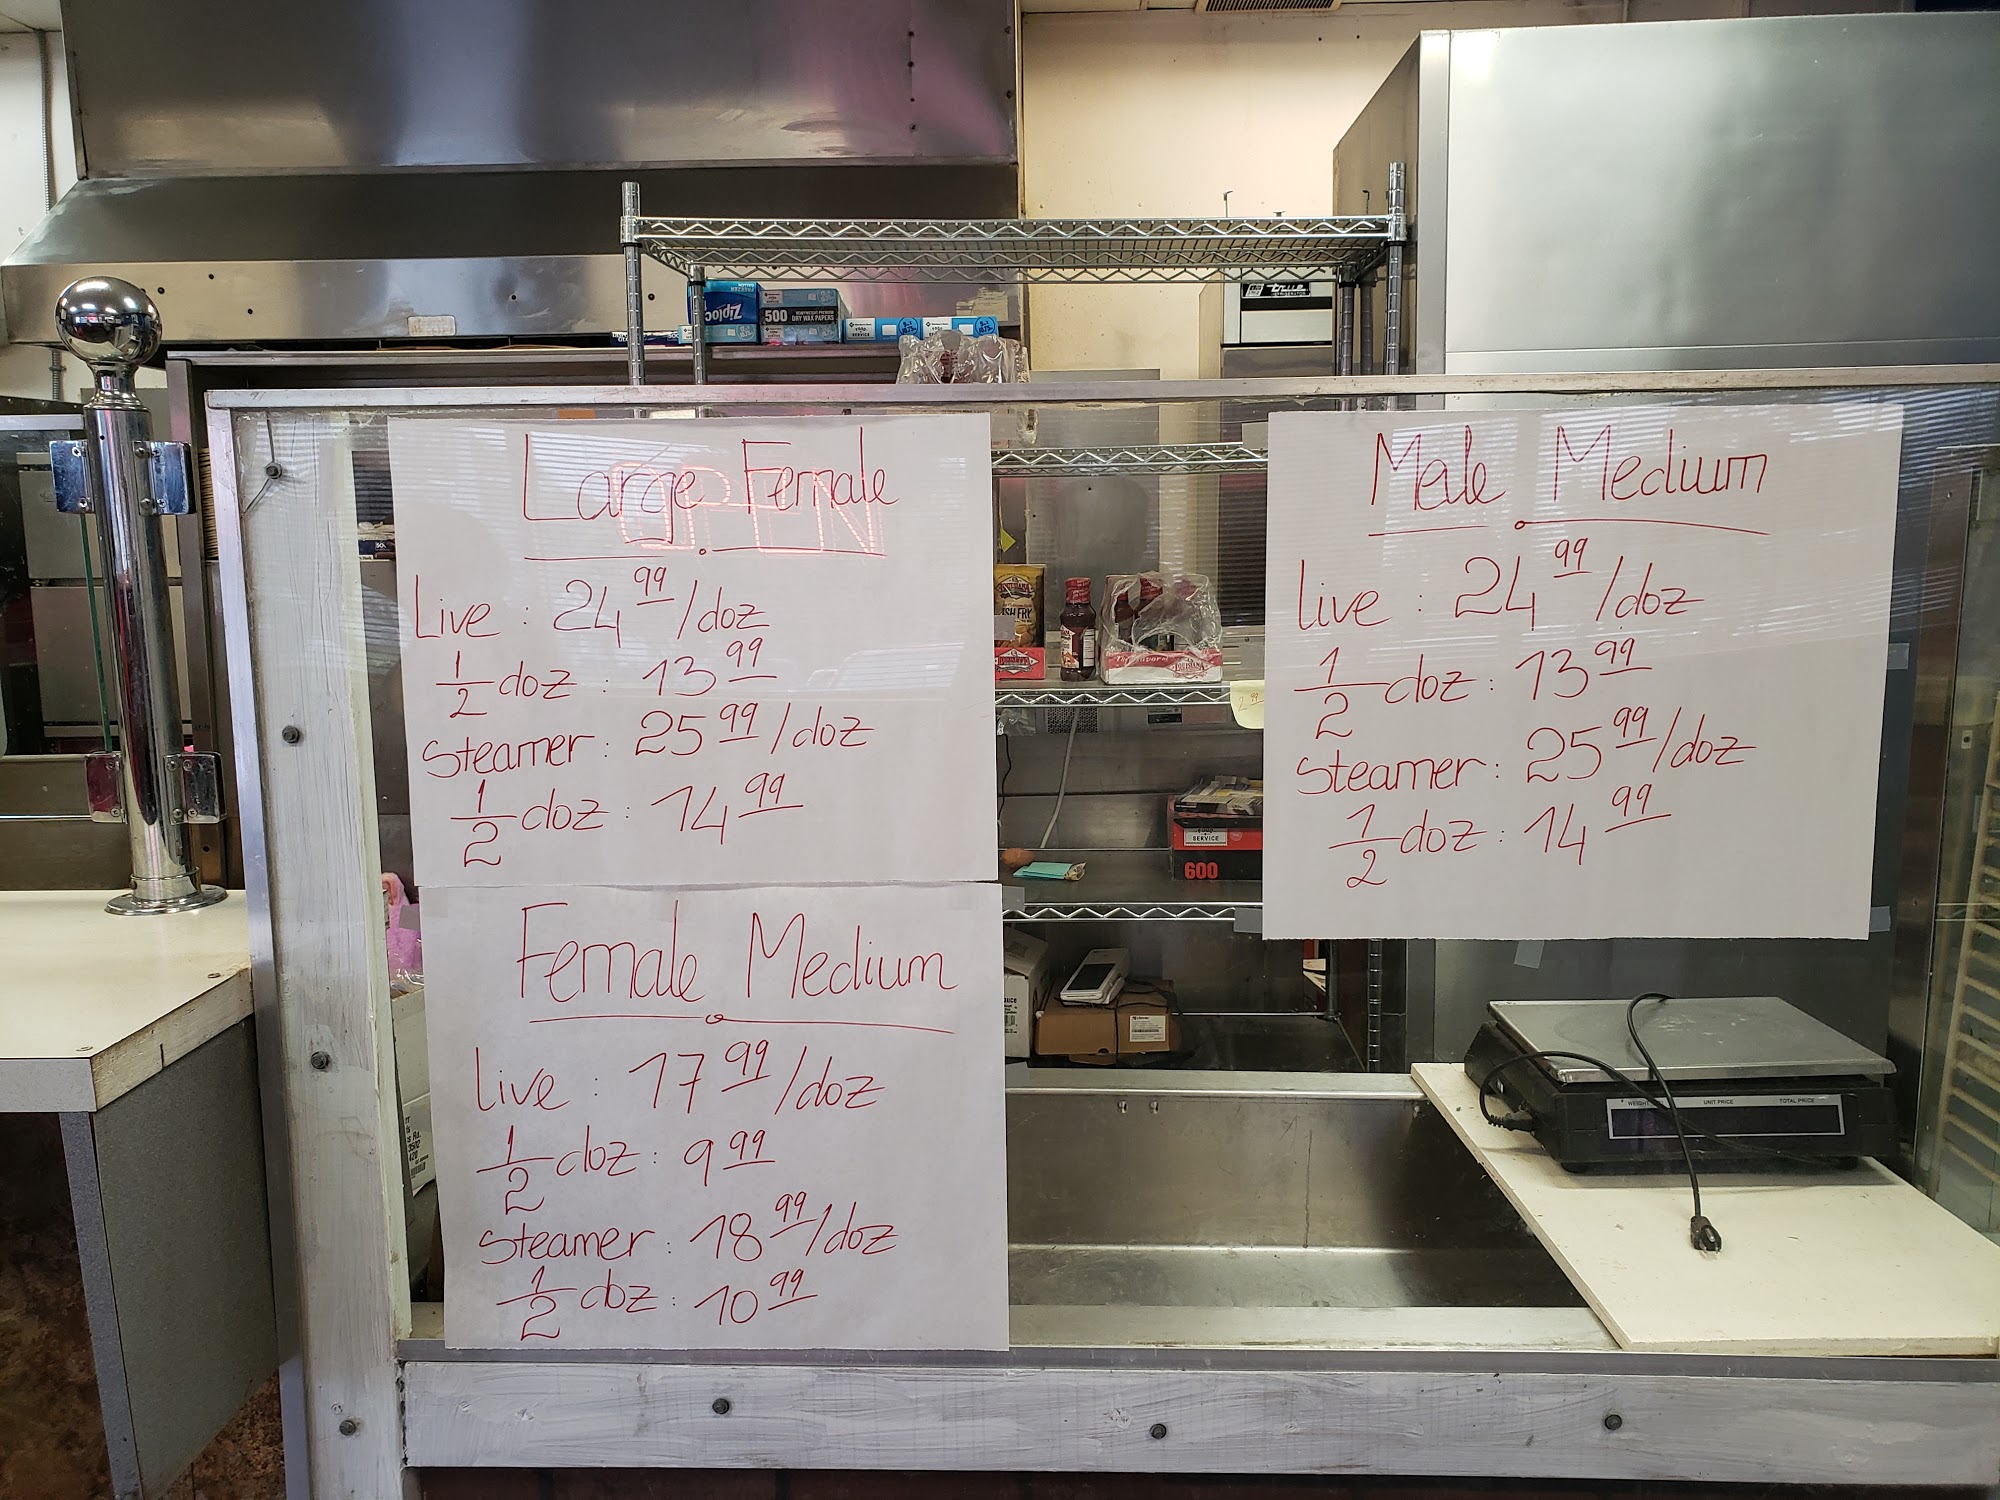 Ziploc
500
DRY WAX PAPERS
true
Large Female
OPEN
Live : 24 99/doz
1/2 doz : 13 99
Steamer : 25 99/doz
1/2 doz : 14 99
Female Medium
Live : 17 99/doz
1/2 doz : 9 99
Steamer : 18 99/doz
1/2 doz : 10 99
Male Medium
Live : 24 99/doz
1/2 doz : 13 99
Steamer : 25 99/doz
1/2 doz : 14 99
LOUISIANA
SERVICE
600
UNIT PRICE
TOTAL PRICE